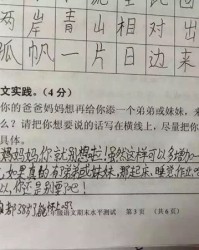 两岸青山相对出
孤帆一片日边来
文实践。(4分)
你的爸爸妈妈想再给你添一个弟弟或妹妹，来
么？请把你想要说的话写在横线上，尽量把你
具体。
妈妈你就别想啦!虽然这样可以多增加一
如果真的有弟弟或妹妹,那起床、睡觉、作业
以,你还是别要了吧!
都38岁了
语文期末水平测试 第3页 (共6页)